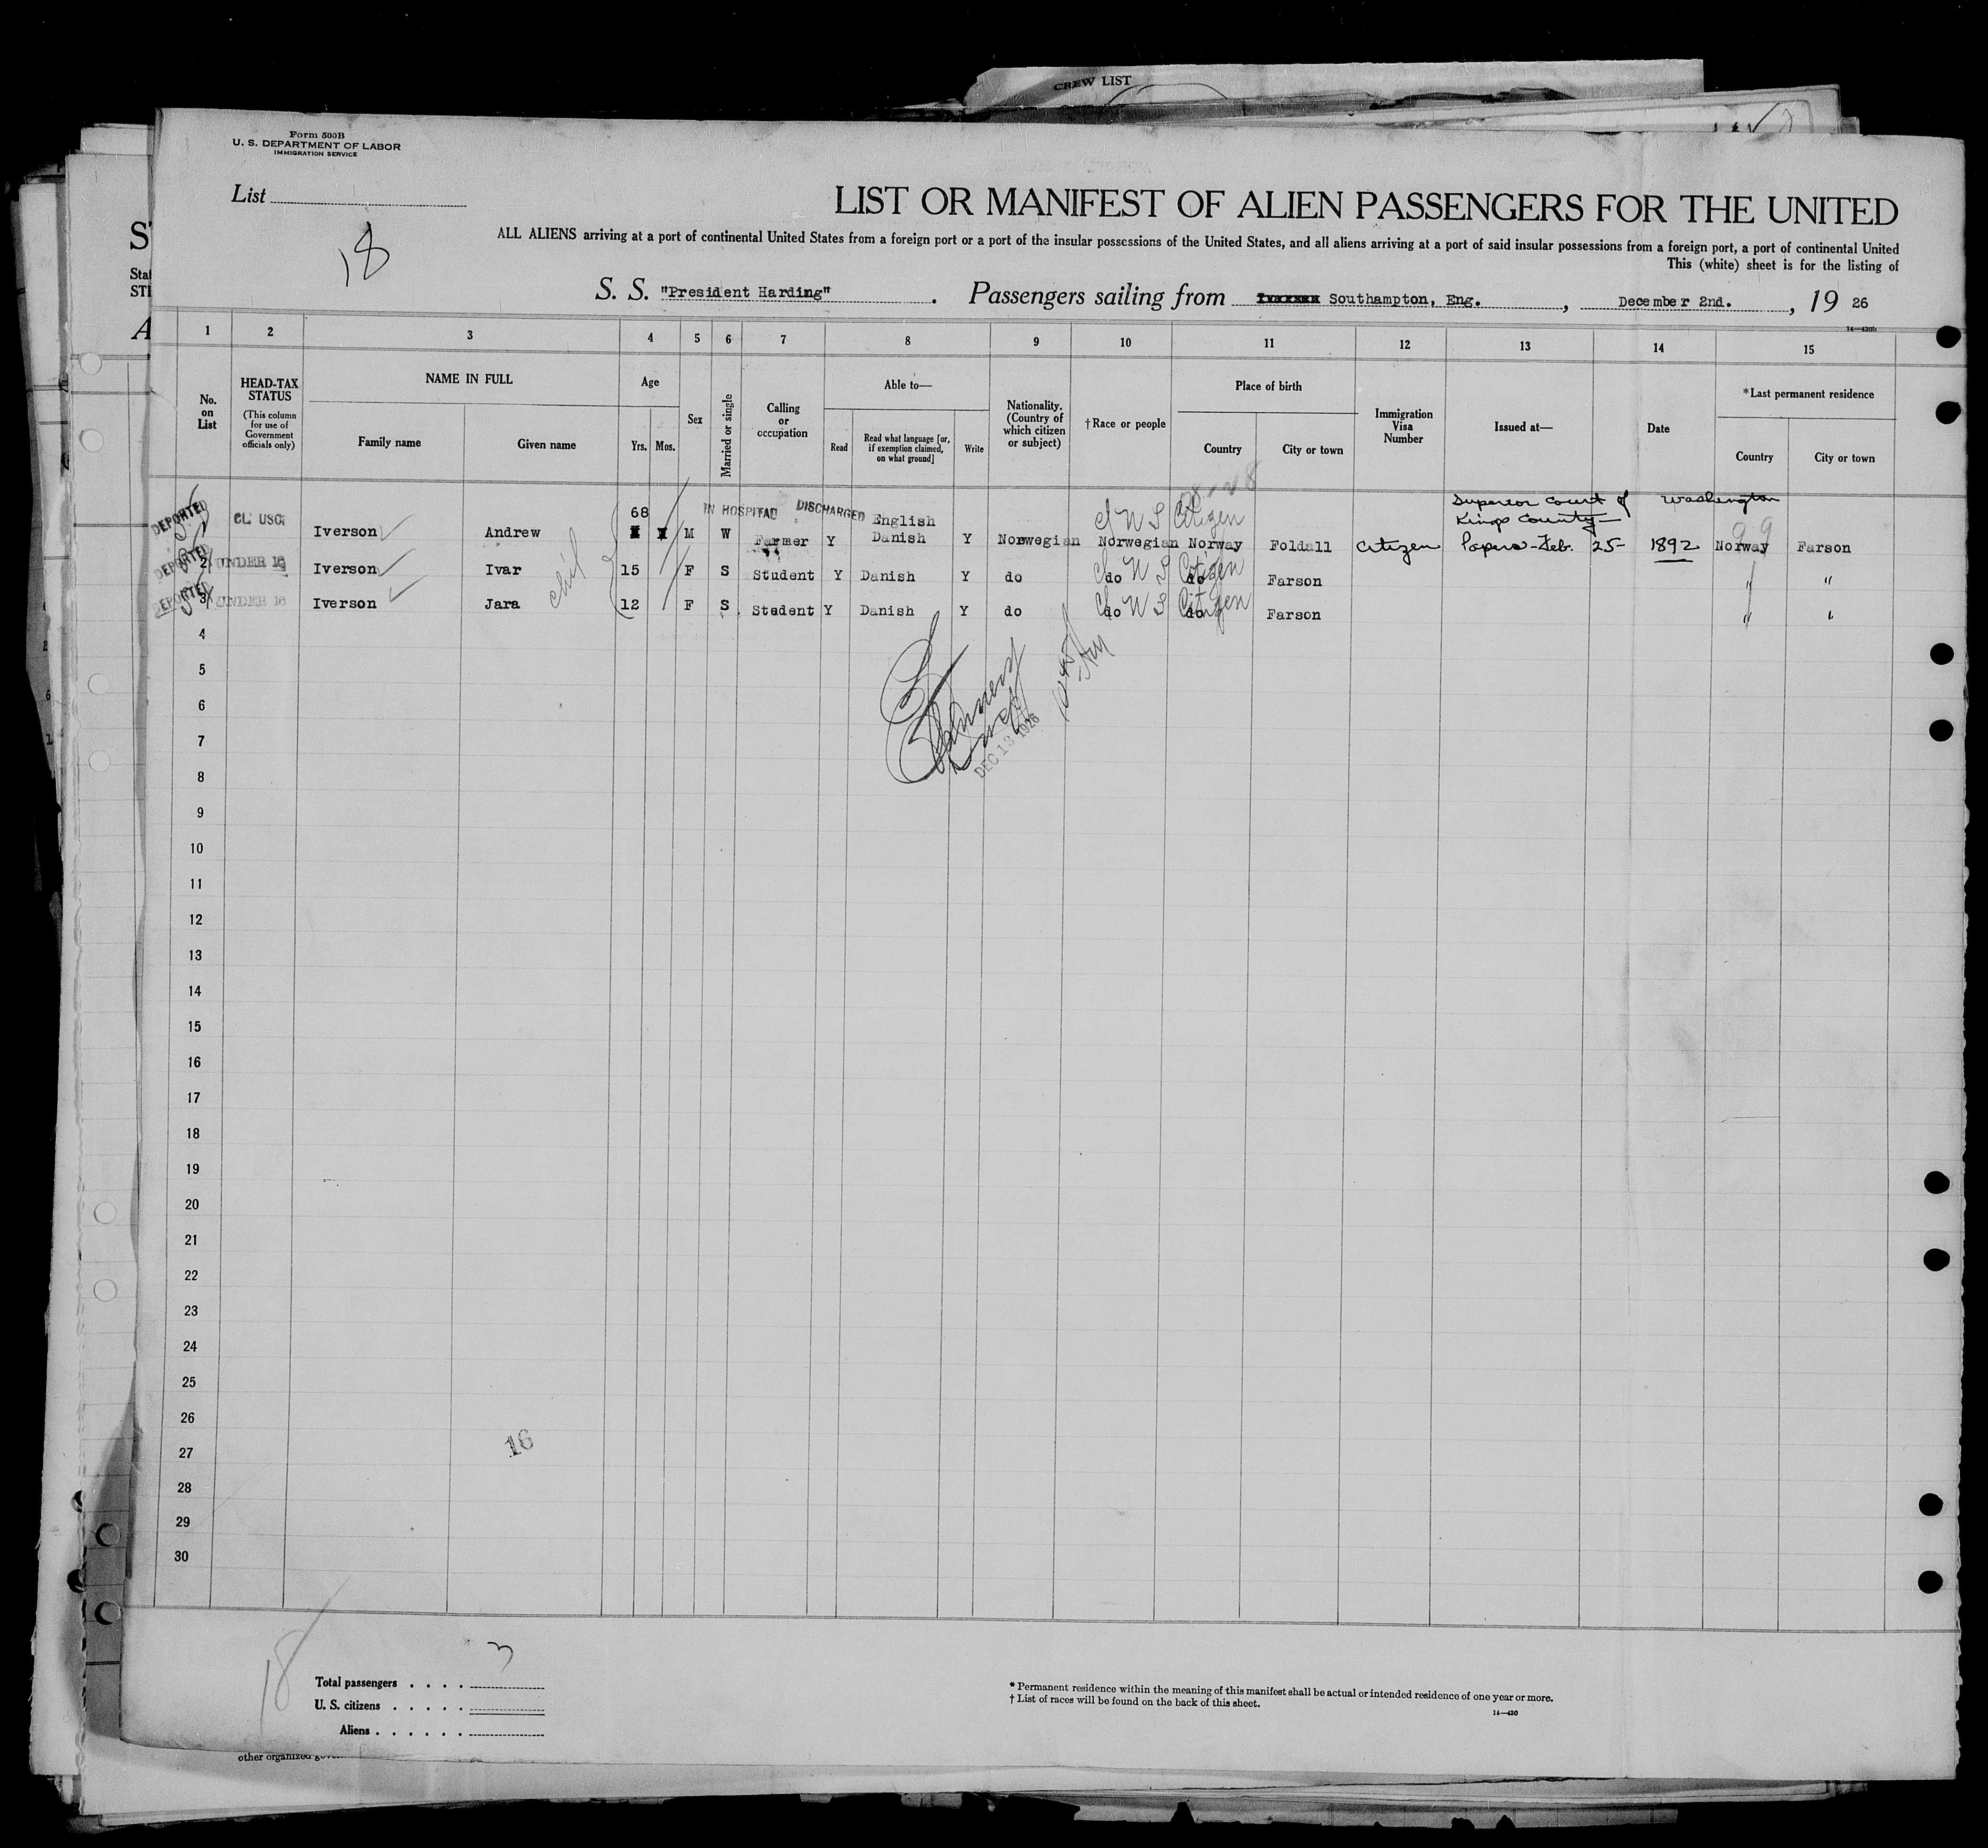 CREW LIST
Form 500B
U. S. DEPARTMENT OF LABOR
IMMIGRATION SERVICE
List
18
LIST OR MANIFEST OF ALIEN PASSENGERS FOR THE UNITED
ALL ALIENS arriving at a port of continental United States from a foreign port or a port of the insular possessions of the United States, and all aliens arriving at a port of said insular possessions from a foreign port, a port of continental United
This (white) sheet is for the listing of
S. S. "President Harding". Passengers sailing from Southampton, Eng., December 2nd., 19 26
14—430b
1 2 3 4 5 6 7 8 9 10 11 12 13 14 15
No. on List
HEAD-TAX STATUS
(This column for use of Government officials only)
NAME IN FULL
Family name Given name
Age
Yrs. Mos.
Sex
Married or single
Calling or occupation
Able to—
Read
Read what language [or, if exemption claimed, on what ground]
Write
Nationality. (Country of which citizen or subject)
†Race or people
Place of birth
Country City or town
Immigration Visa Number
Issued at—
Date
*Last permanent residence
Country City or town
DEPORTED CL USC Iverson Andrew 68 M W IN HOSPITAL DISCHARGED Farmer Y English Danish Y Norwegian Norwegian Norway U S Citizen Foldall Citizen Superior Court of Washington Kings County Papers-Feb. 25- 1892 Norway 99 Farson
DEPORTED 2 UNDER 16 Iverson Ivar 15 F S Student Y Danish Y do do do U S Citizen Farson " "
DEPORTED 3 UNDER 16 Iverson Jara 12 F S Student Y Danish Y do do do U S Citizen Farson " "
4
5
6
7
DEC 13 1926
8
9
10
11
12
13
14
15
16
17
18
19
20
21
22
23
24
25
26
27
16
28
29
30
18
3
Total passengers
U. S. citizens
Aliens
* Permanent residence within the meaning of this manifest shall be actual or intended residence of one year or more.
† List of races will be found on the back of this sheet.
14—430
other organized